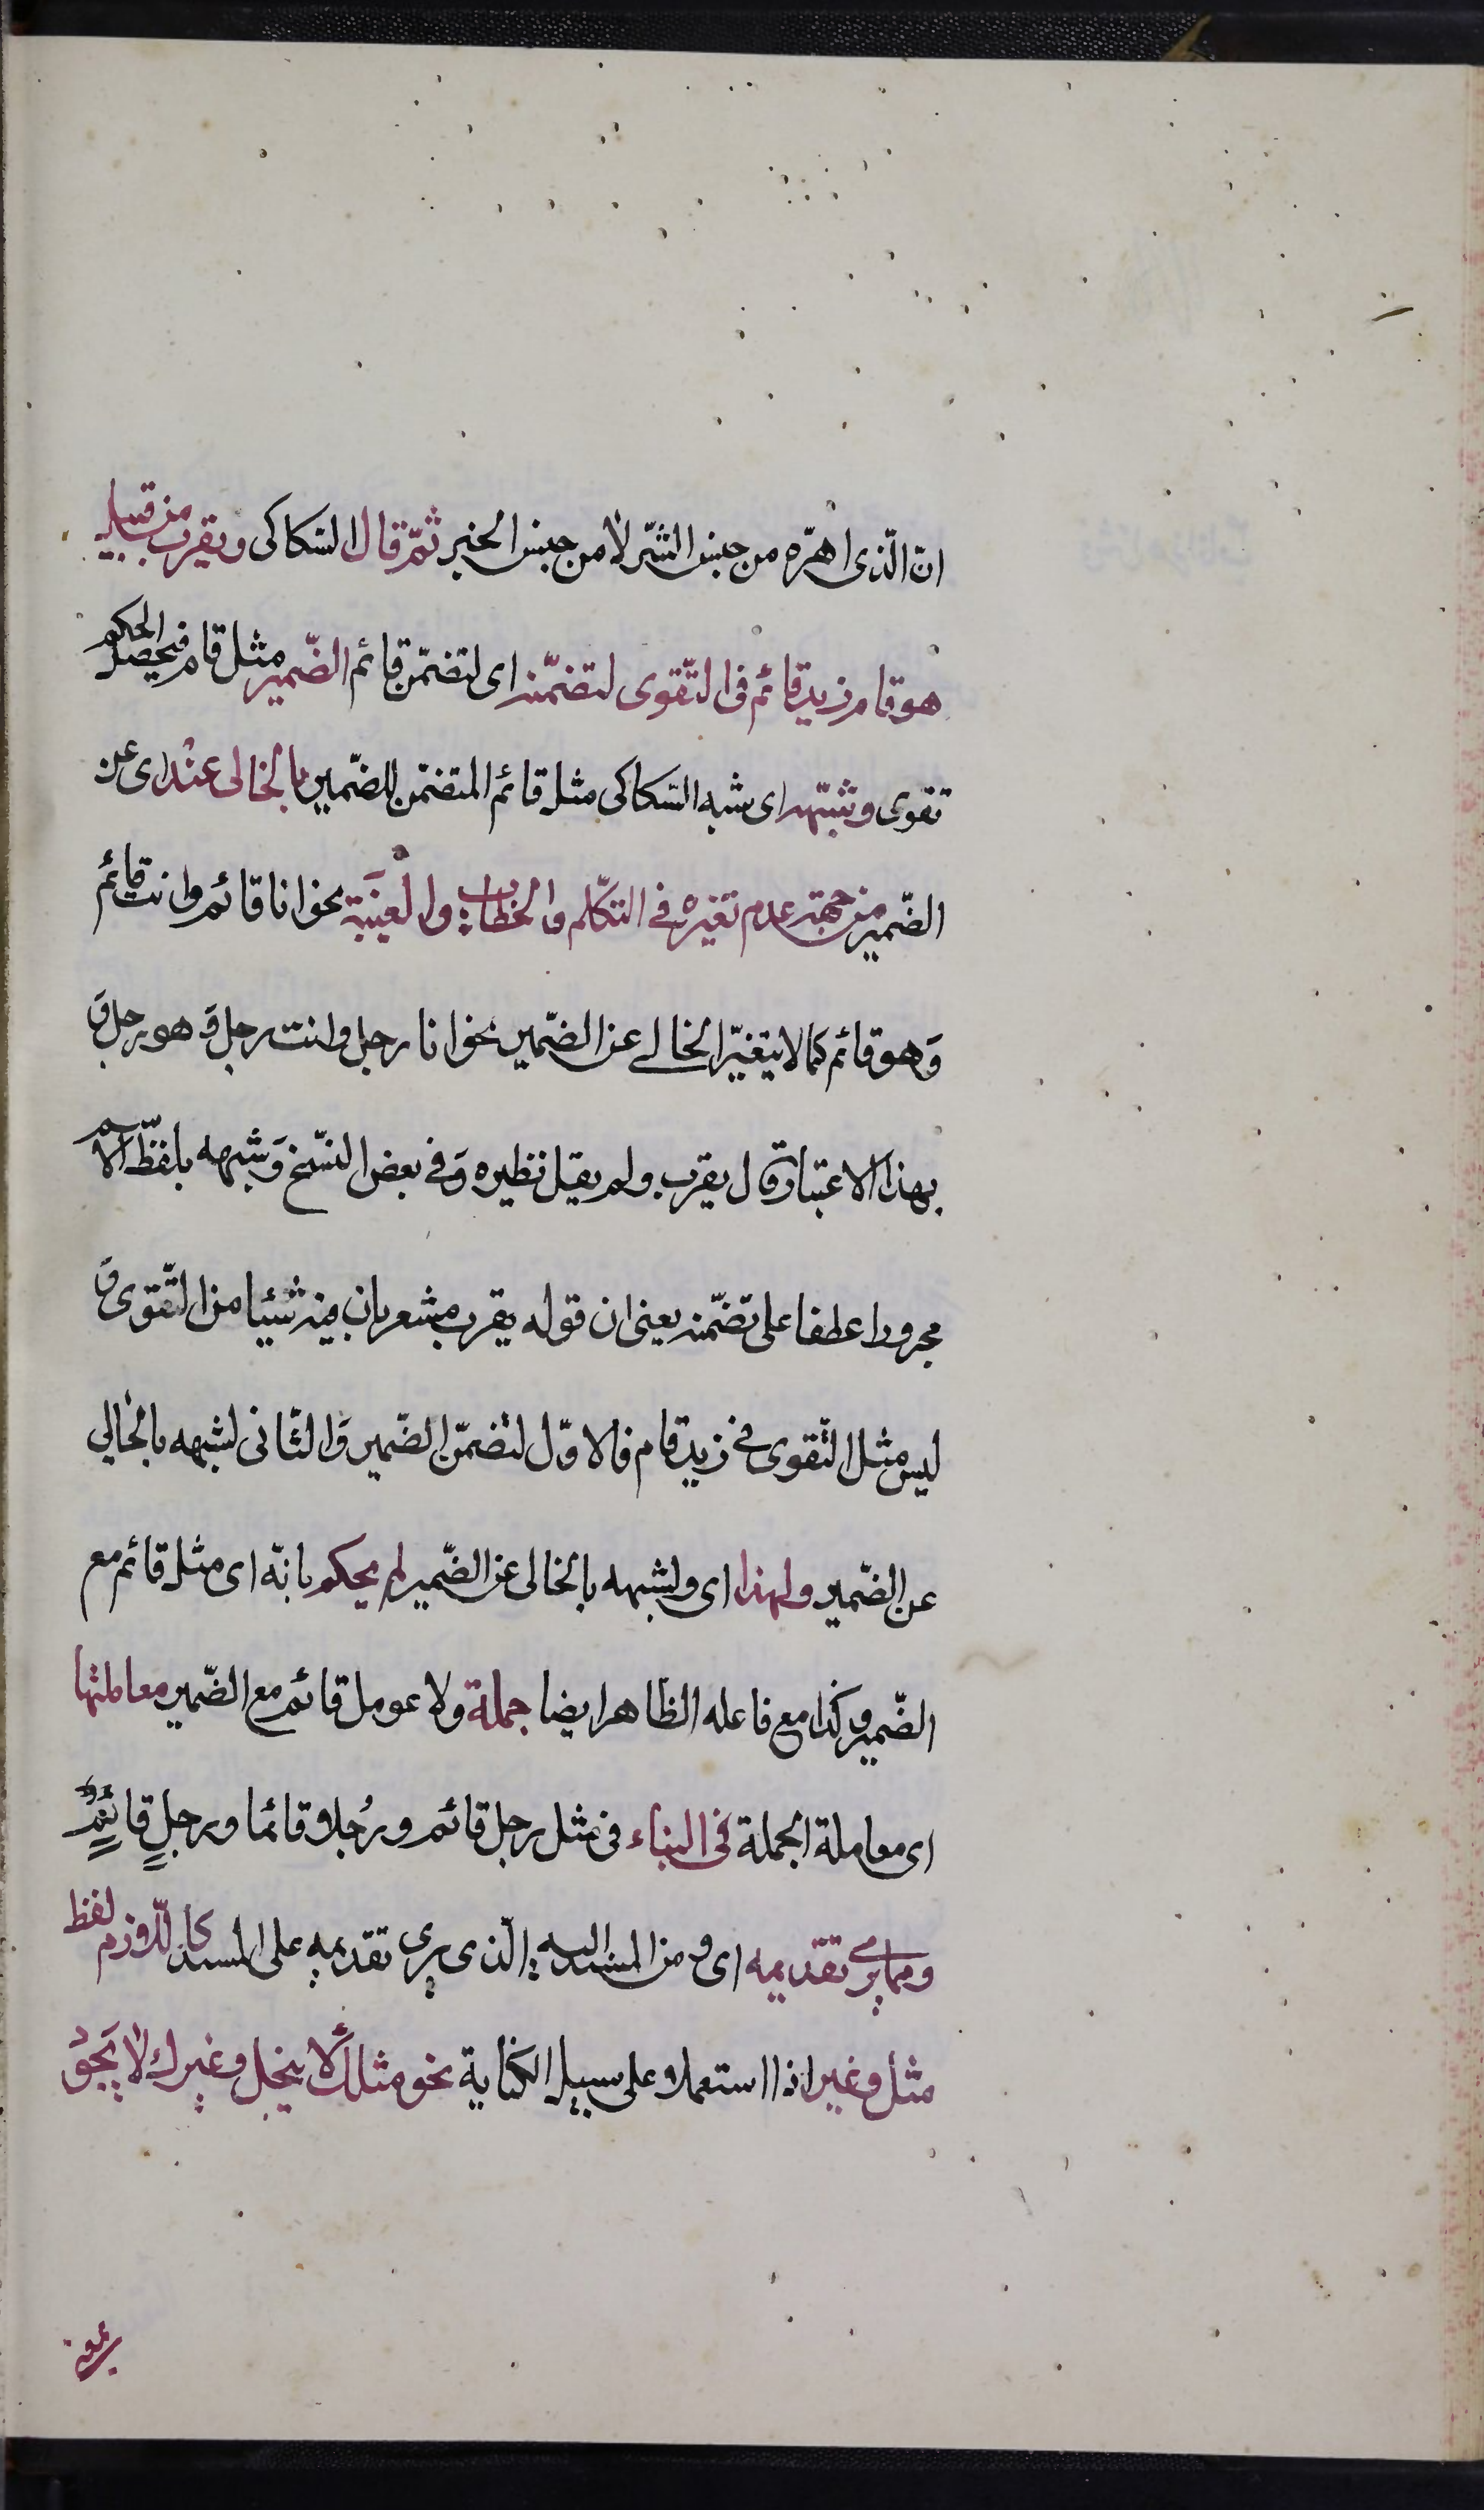 ان الّذى اهرّه من جنس الشّر لا من جنس الخير ثمّ قال السّكاكى ويقرب من قبيل
هو قام زيد قائم فى التّقوى لتضمّنه اى لتضمّن قائم الضّمير مثل قام فيحصل الحكم
تقوى وشبّهه اى شبه السّكاكى مثل قائم المتضمّن للضّمير بالخالى عنه اى عن
الضّمير من جهة عدم تغيره فى التكلّم والخطاب والغيبة نحو انا قائم وانت قائم
وَهو قائم كما لا يتغيّر الخالى عن الضّمير نحو انا رجل وانت رجل وَهو رجل وَ
بهذا الاعتبار قال يقرب ولم يقل نظيره وَفى بعض النسّخ وَشبهه بلفظّ الاسم
مجرورا عطفا على تضمّنه يعنى ان قوله يقرب مشعر بان فيه شيئا من التّقوى وَ
ليس مثل التّقوى فى زيد قام فالاوّل لتضمّن الضّمير وَالثّانى لشبهه بالخالى
عن الضّمير ولهذا اى ولشبهه بالخالى عن الضّمير لم يحكم بانّه اى مثل قائم مع
الضّمير وكذا مع فاعله الظاهر ايضا جملة ولا عومل قائم مع الضّمير معاملتها
اى معاملة الجملة فى البناء فى مثل رجل قائم ورُجلا قائما ورجلٍ قائمٍ
ومما يرى تقديمه اى ومن المسند اليه الّذى يرى تقديمه على المسند كاللّازم لفظ
مثل وغير اذا استعملا على سبيل الكناية نحو مثلك لا يبخل وغيرك لا يَجوُ